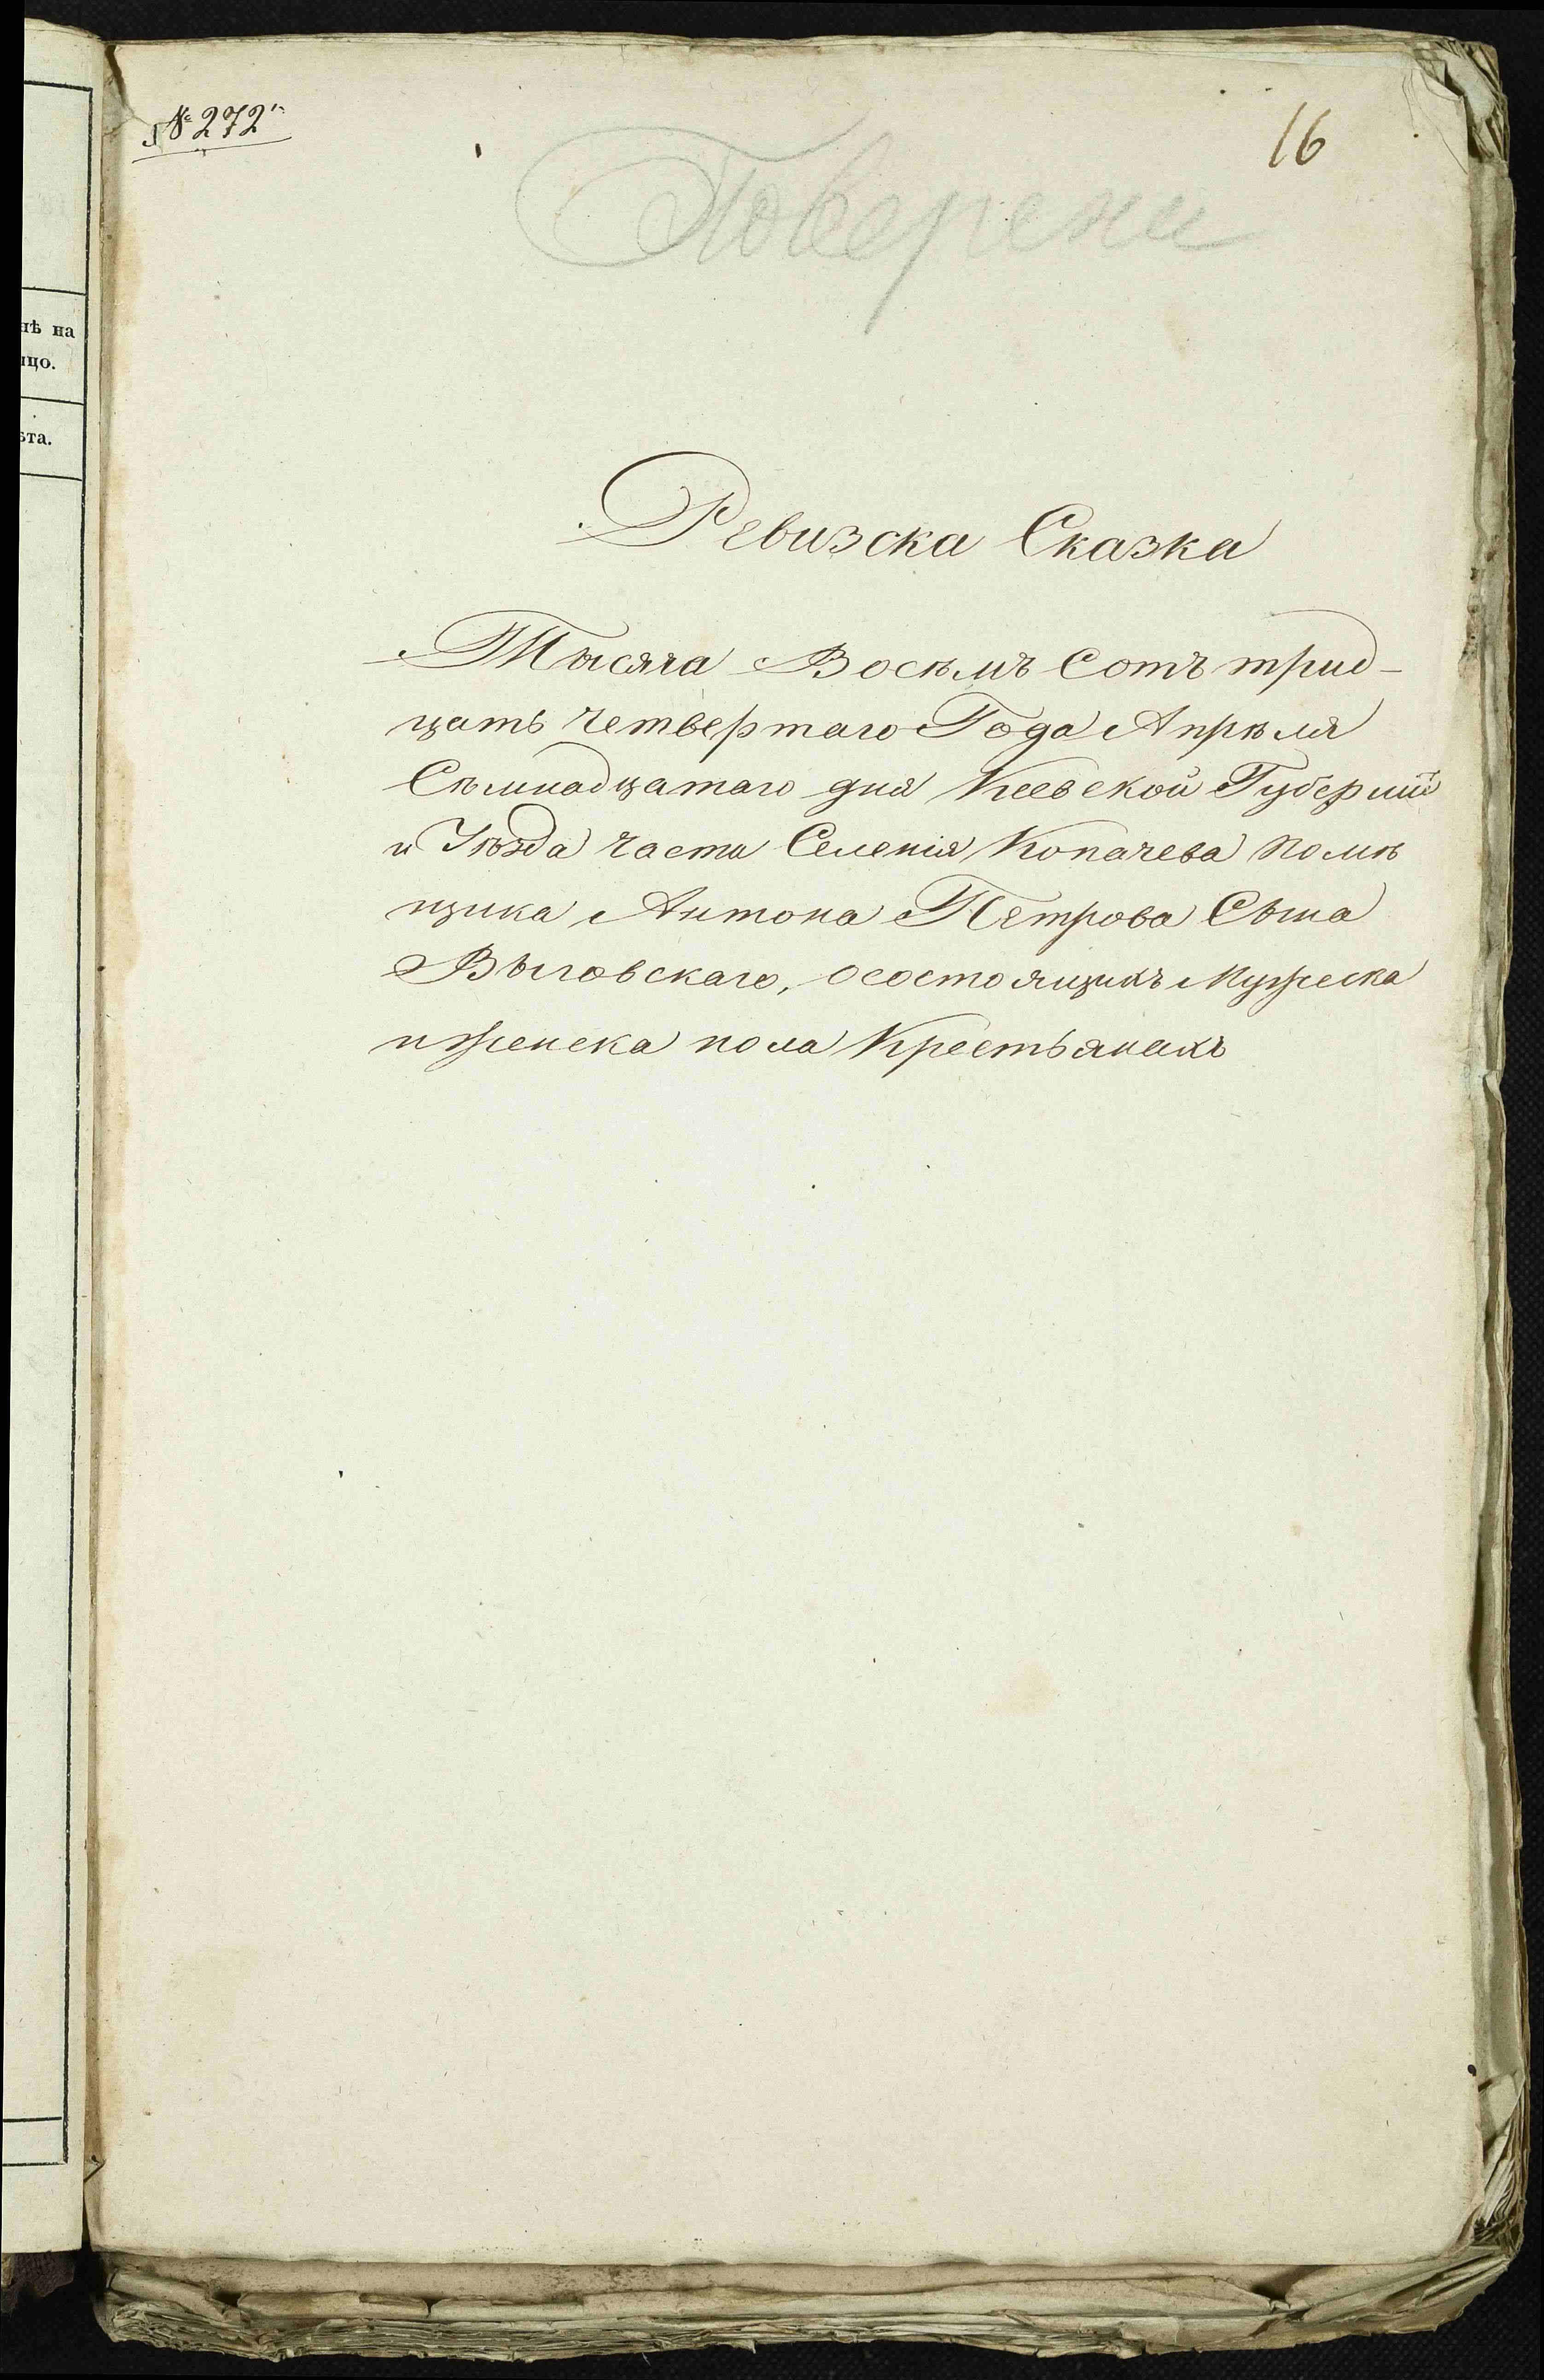 № 272й
16
Поверени
Ревизска Сказка
Тысяча Восѣмъ Сотъ трид-
цать четвертаго Года Апрѣля
Сѣмнадцатаго дня Кіевской Губерніи
и Уѣзда части Селенія Копачева Помѣ
щика Антона Петрова Сына
Выговскаго, о состоящихъ Мужеска
и женска пола Крестьянахъ
нѣ на
ицо.
ѣта.